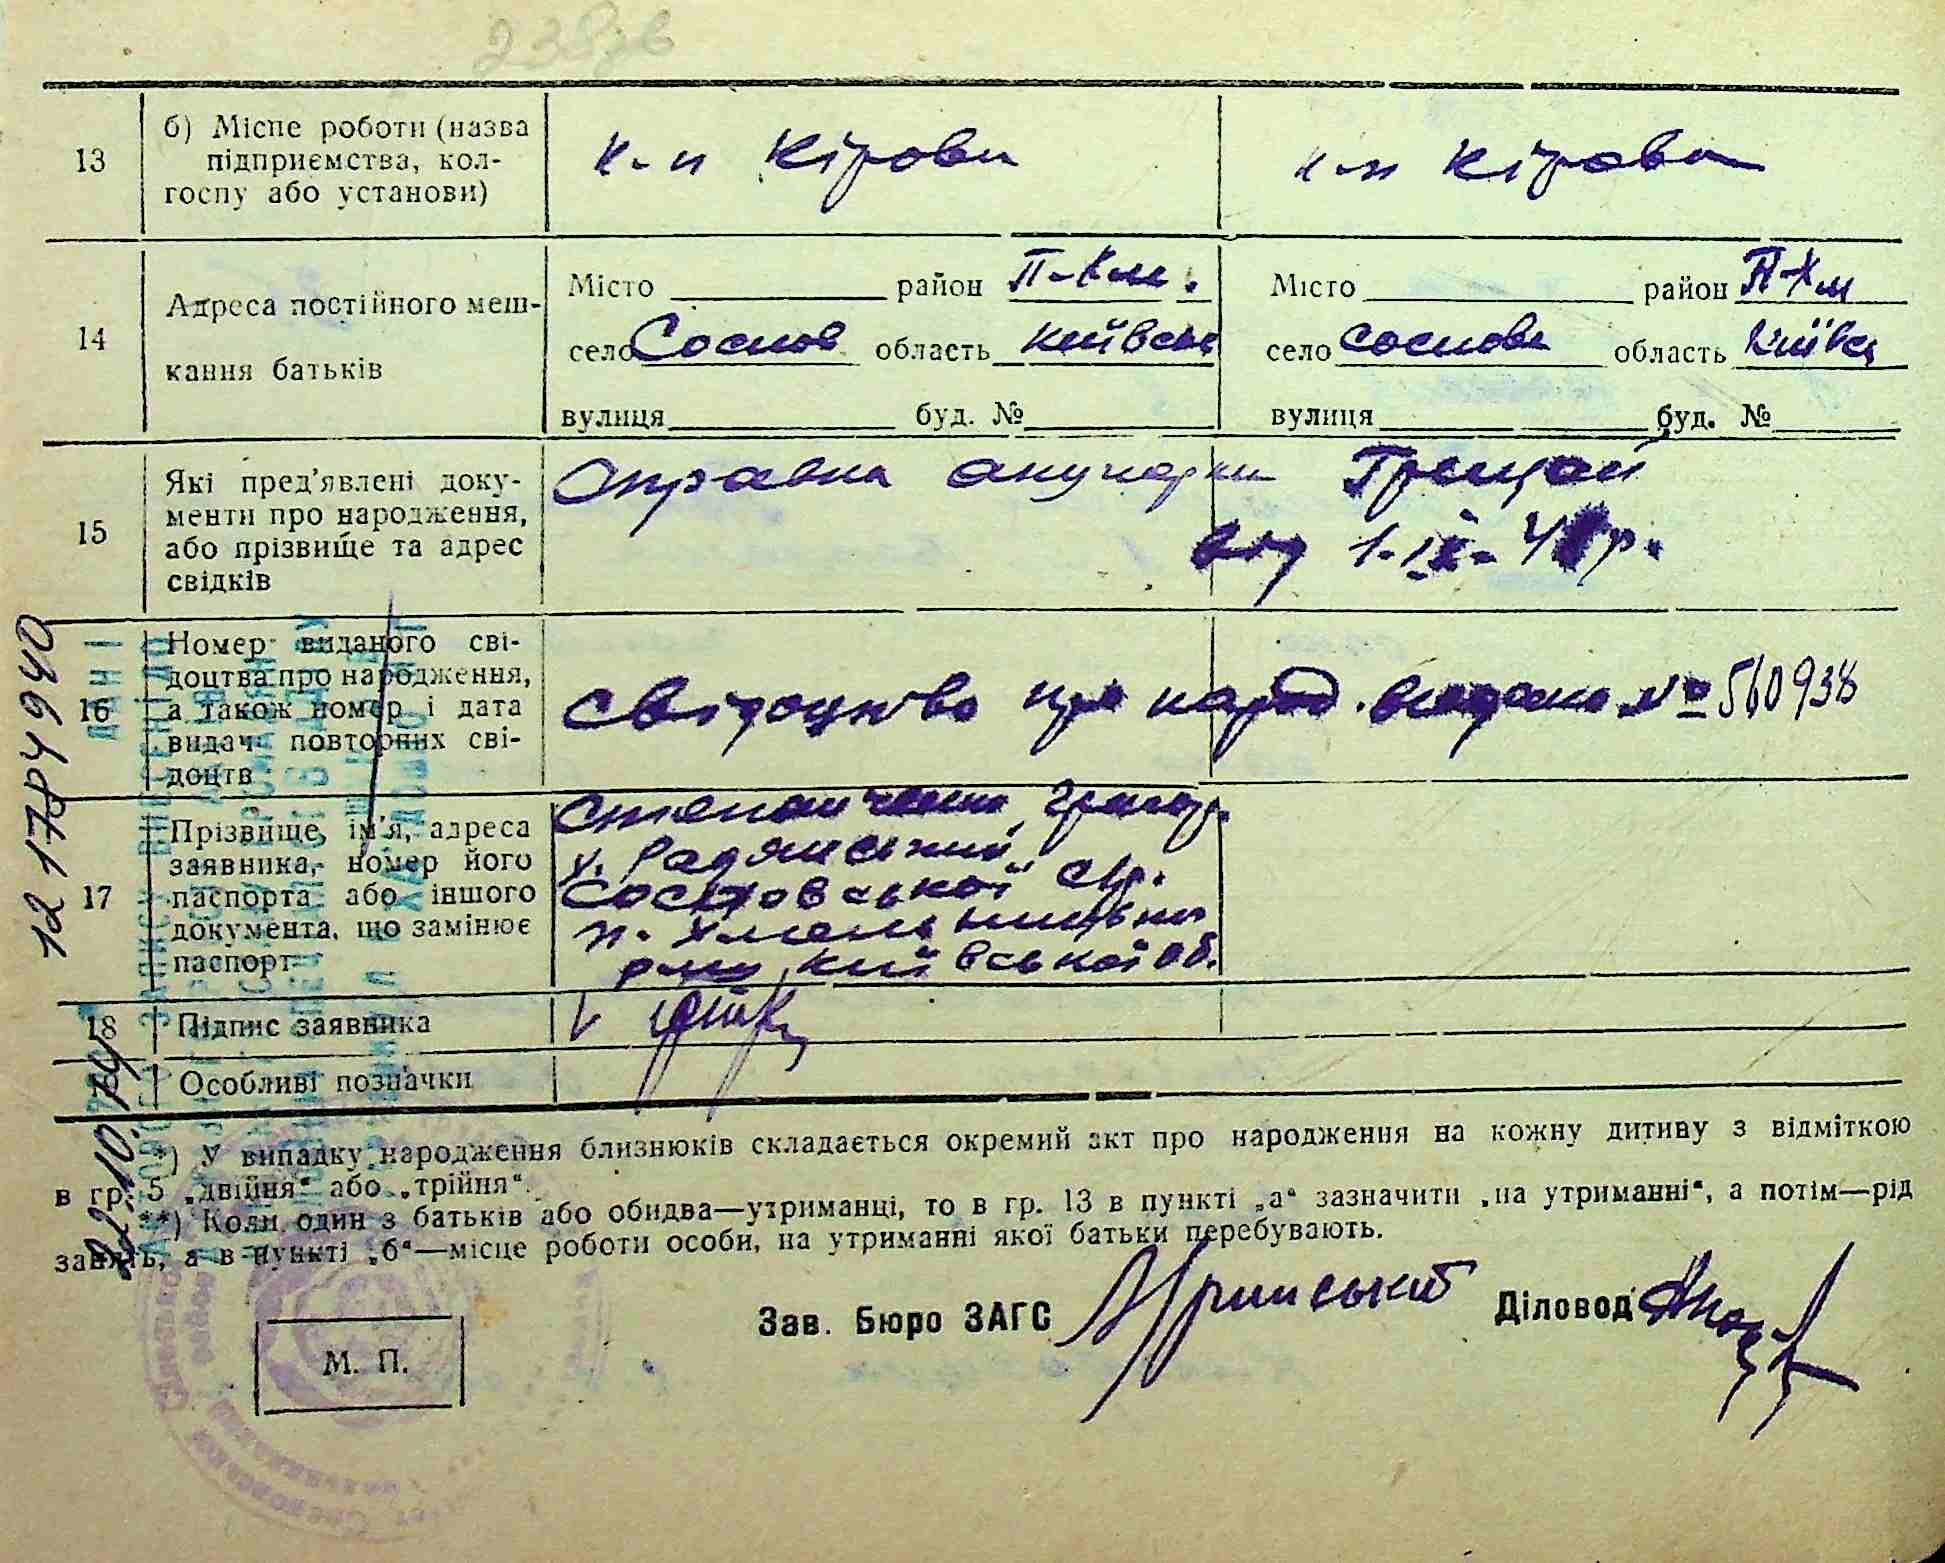 13
б) Місце роботи (назва
підприємства, кол-
госпу або установи)
к-п Кірова
к-п Кірова
14
Адреса постійного меш-
кання батьків
Місто район П-Хм.
село Соснов область Київськ
вулиця буд. №
Місто район П-Хм
село Соснова область Київсь
вулиця буд. №
15
Які пред'явлені доку-
менти про народження,
або прізвище та адрес
свідків
Справка акушерки Грицай
від 1-IX-4 р.
16
Номер виданого сві-
доцтва про народження,
а також номер і дата
видачі повторних сві-
доцтв
свідоцтво про народ. видано № 560938
17
Прізвище, ім'я, адреса
заявника, номер його
паспорта або іншого
документа, що замінює
паспорт
х. Радянський
Сосновської с/р.
п. Хмельницьки
р-ну Київської об.
18
Підпис заявника
Особливі позначки
*) У випадку народження близнюків складається окремий акт про народження на кожну дитину з відміткою
в гр. 5 „двійня“ або „трійня“.
**) Коли один з батьків або обидва—утриманці, то в гр. 13 в пункті „а“ зазначити „на утриманні“, а потім—рід
занять, а в пункті „б“—місце роботи особи, на утриманні якої батьки перебувають.
Зав. Бюро ЗАГС
Діловод
М. П.
22.10.14